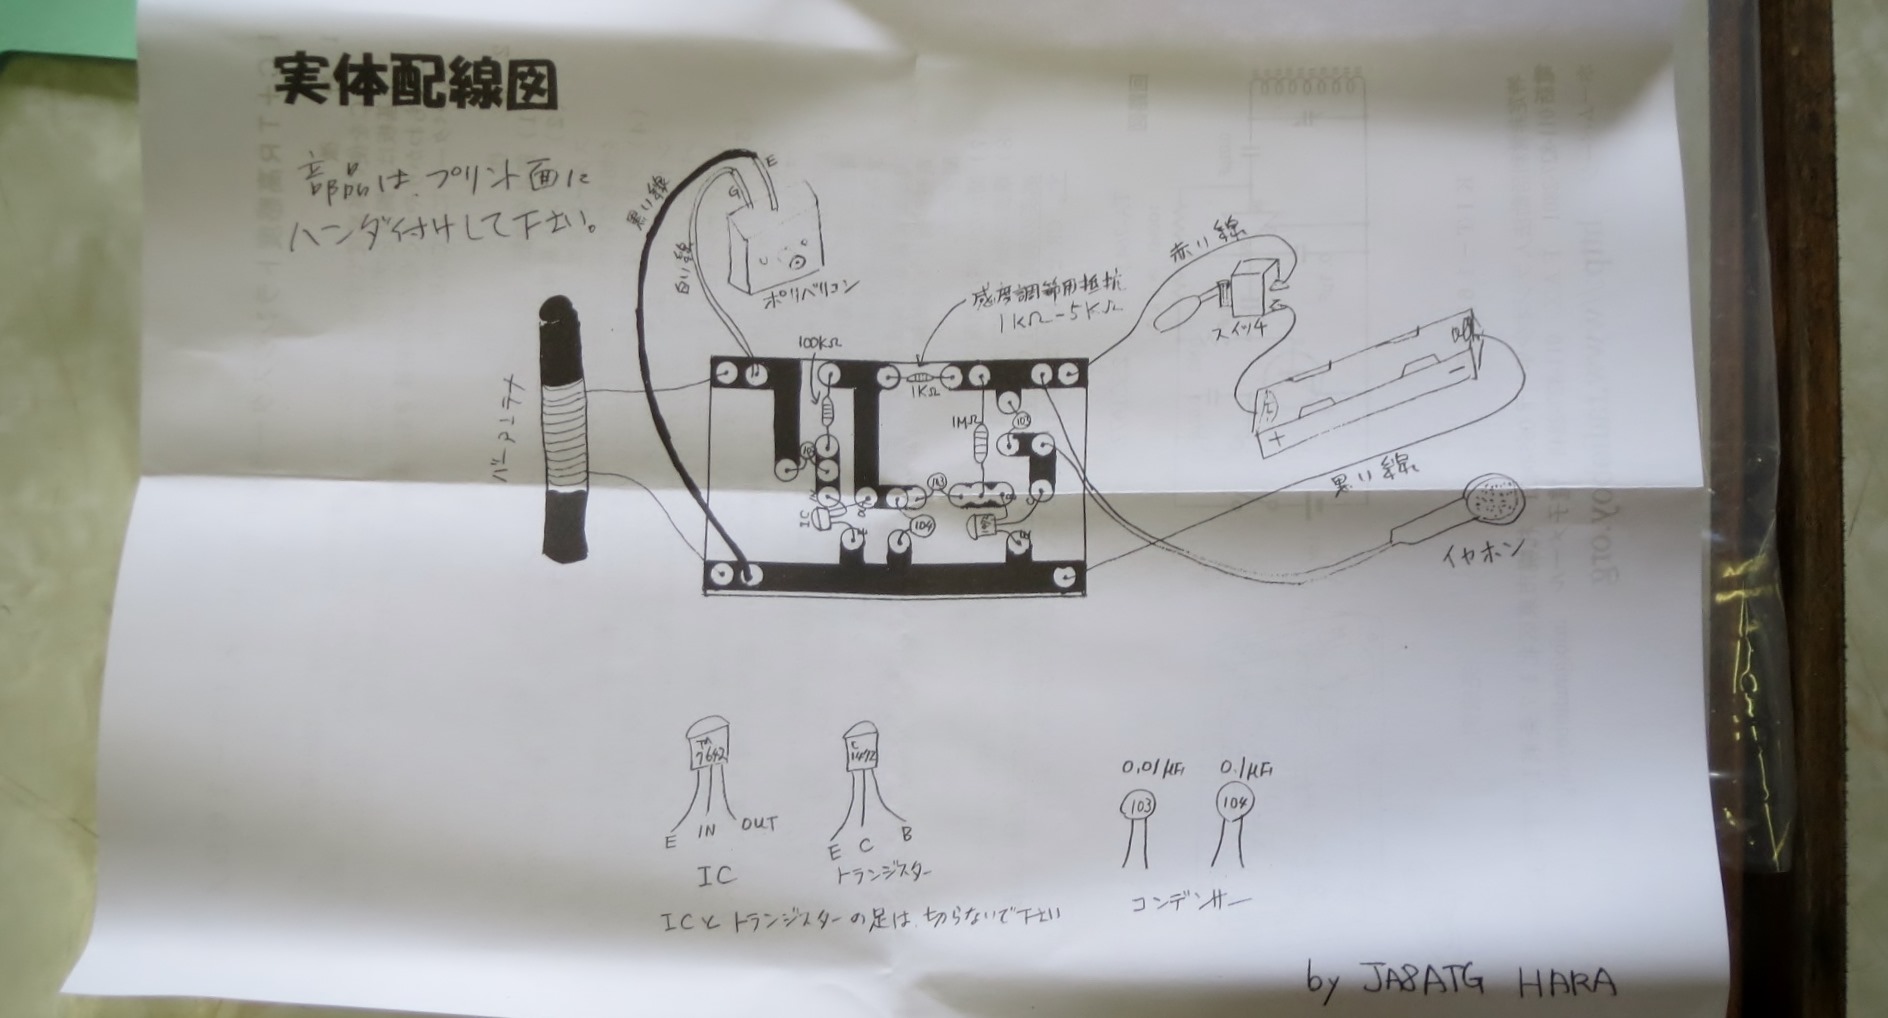 実体配線図
部品は、プリント面に
ハンダ付けして下さい。
黒い線
白い線
G
E
ポリバリコン
感度調節用抵抗
1KΩ-5KΩ
赤い線
スイッチ
バーアンテナ
100KΩ
1KΩ
1MΩ
103
103
103
104
IC
E
B
C
E
+
-
黒い線
イヤホン
7642
E IN OUT
IC
C
1472
E C B
トランジスター
0.01μF
103
0.1μF
104
コンデンサー
ICとトランジスターの足は、切らないで下さい
by JA8ATG HARA